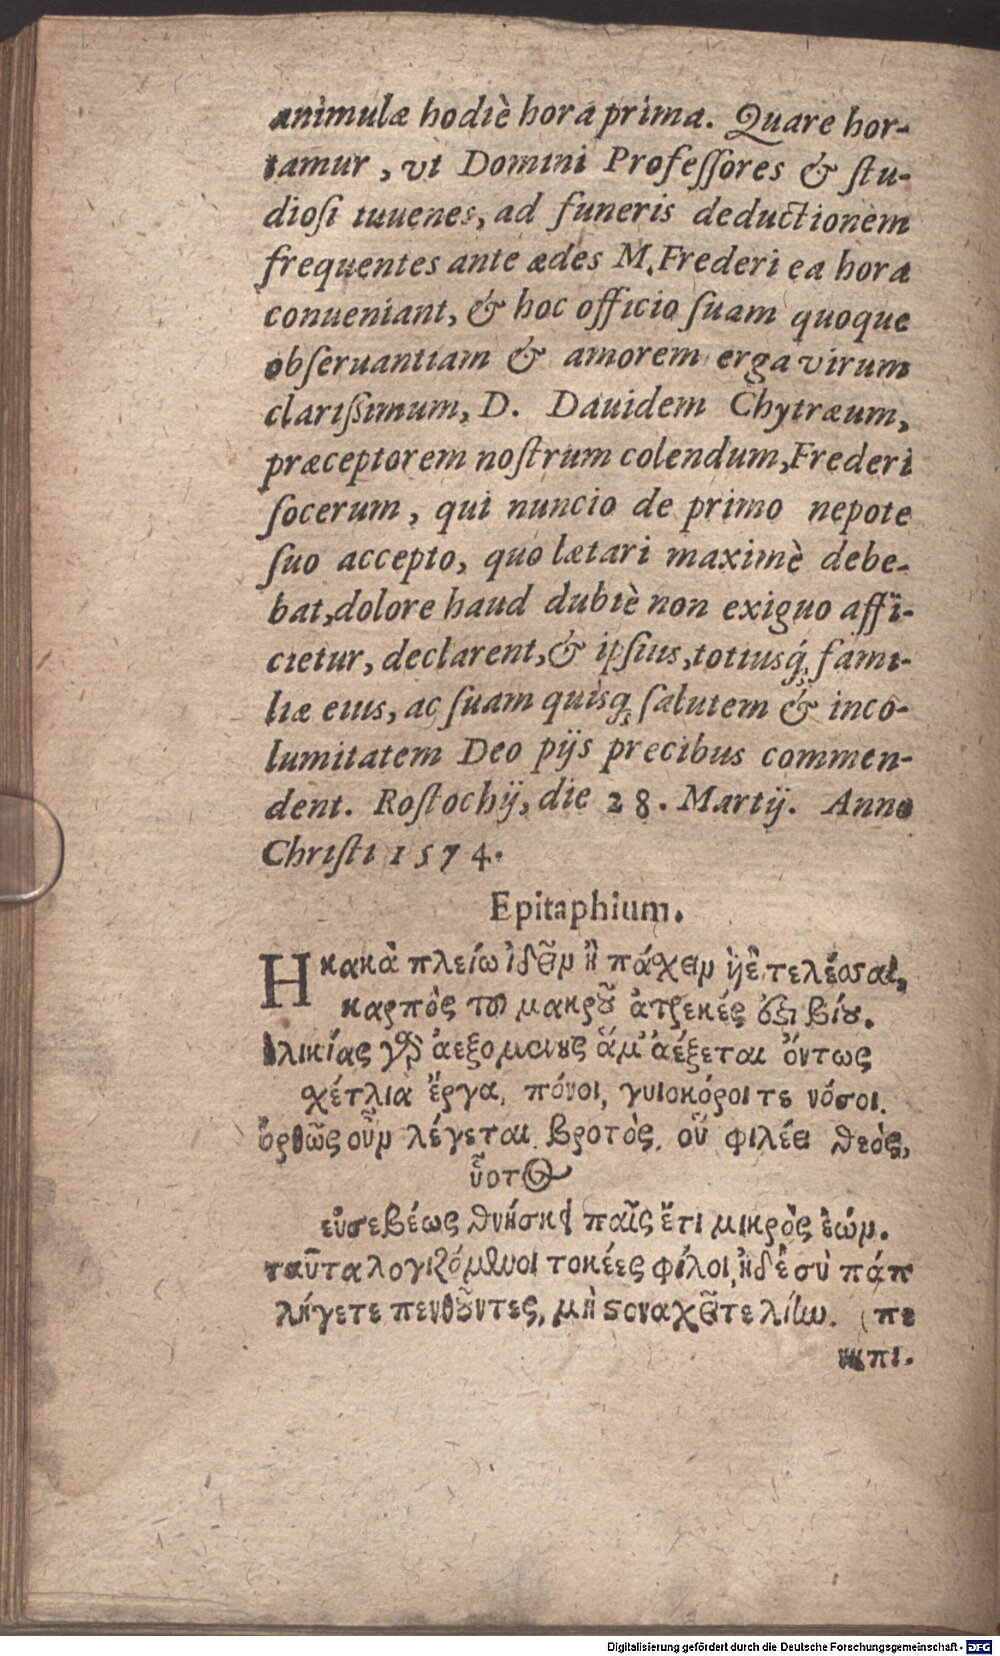 animulæ hodiè hora prima. Quare hor-
tamur, vt Domini Professores & stu-
diosi iuuenes, ad funeris deductionem
frequentes ante ædes M. Frederi ea hora
conueniant, & hoc officio suam quoque
obseruantiam & amorem erga virum
clarissimum, D. Dauidem Chytræum,
præceptorem nostrum colendum, Frederi
socerum, qui nuncio de primo nepote
suo accepto, quo lætari maximè debe-
bat, dolore haud dubiè non exiguo affi-
cietur, declarent, & ipsius, totiusq́; fami-
liæ eius, ac suam quisq; salutem & inco-
lumitatem Deo pijs precibus commen-
dent. Rostochij, die 28. Martij. Anno
Christi 1574.
Epitaphium.
Η κακὰ πλείω ἰδεῖν ἢ πάχειν ἠὲ τελέσσαι,
καρπὸς τοῦ μακροῦ ἀτρεκές ὅξι βίου.
ἡλικίας γὰρ ἀεξομένους ἅμ' ἀέξεται ὄντως
χέτλια ἔργα, πόνοι, γυιοκόροι τε νόσοι.
ὀρθῶς οὖν λέγεται βροτὸς. οὓ φιλέει θεὸς,
οὗτος
εὐσεβέως θνήσκει παῖς ἔτι μικρὸς ἐών.
ταῦτα λογιζόμενοι τοκέες φίλοι, ἠδὲ σὺ πάπ
λήγετε πενθοῦντες, μὴ στοναχεῖτε λίην. (πε
πι.